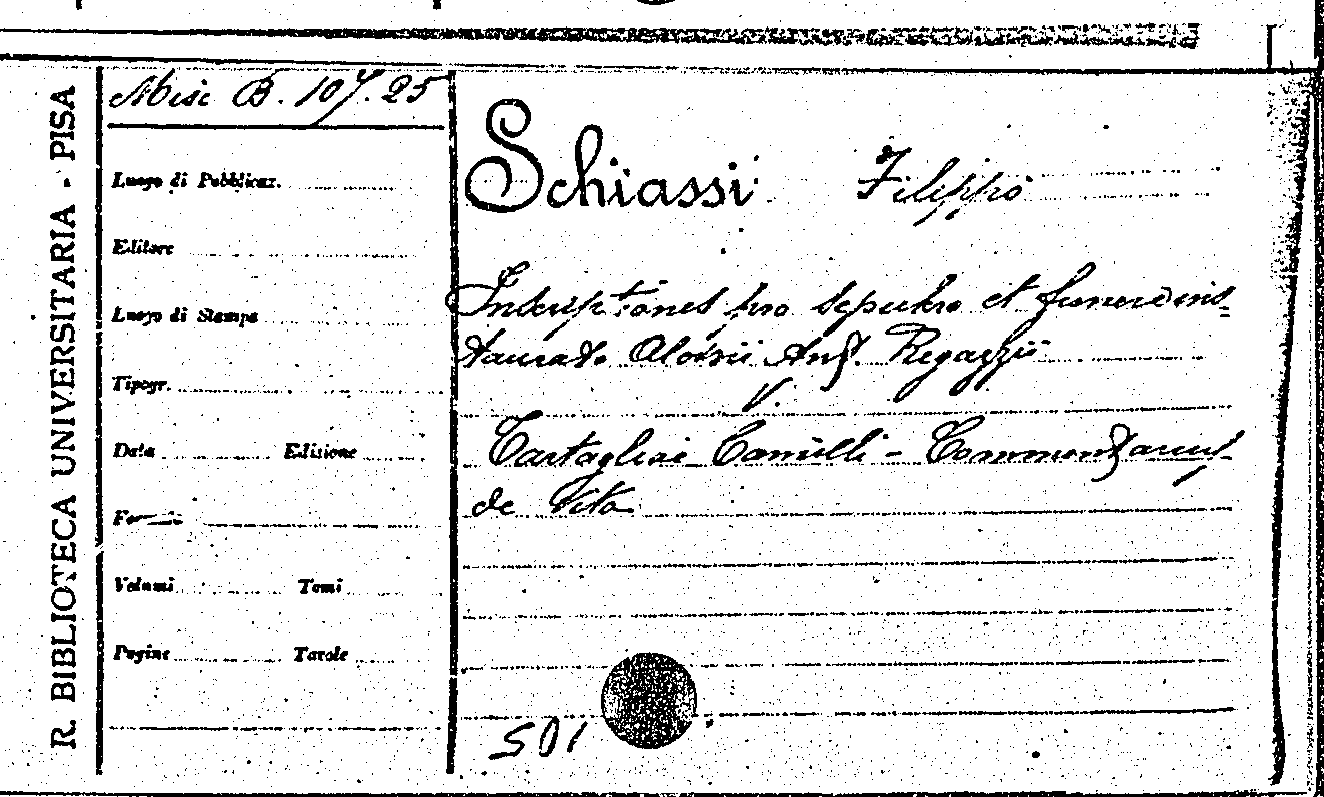 R. BIBLIOTECA UNIVERSITARIA - PISA
Misc B. 107. 25
Luogo di Pubblicaz.
Editore
Luogo di Stampa
Tipogr.
Data Edizione
Volumi Tomi
Pagine Tavole
Schiassi Filippo
Inscriptiones pro sepulcro et funere ins-
taurato Aloisii Ant. Regazzii
V.
Tartagliae Camilli - Commentarius
de Vita
501